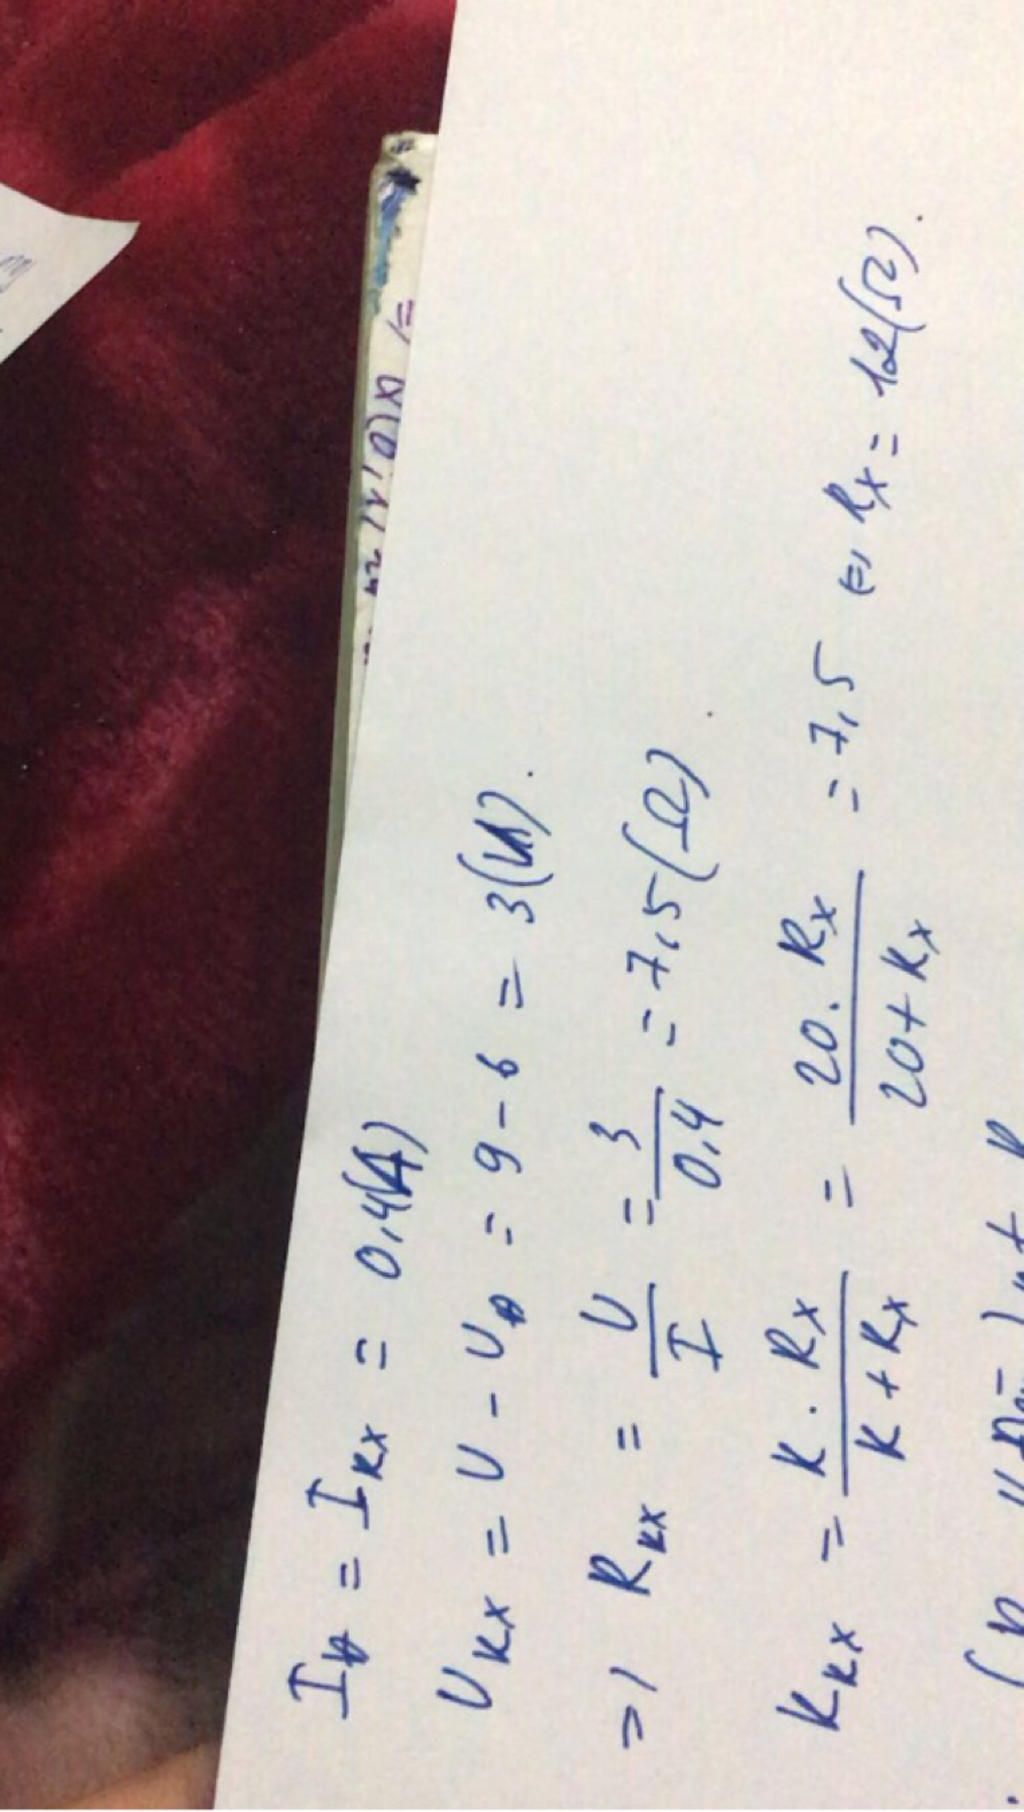 I_đ = I_Rx = 0,4(A)
U_Rx = U - U_đ = 9 - 6 = 3(V).
=> R_Rx = U/I = 3/0,4 = 7,5(Ω).
R_Rx = R . Rx / R + Rx = 20 . Rx / 20 + Rx = 7,5 <=> Rx = 12(Ω).